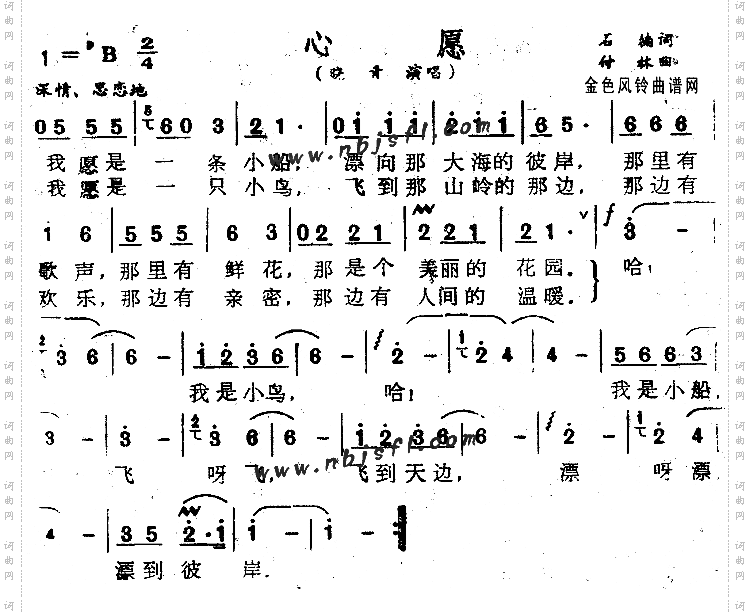 心 愿
1 = ♭B 2/4
（晓 青 演唱）
石 楠 词
付 林 曲
金色风铃曲谱网
深情、思恋地
05 55 | 60 03 | 21 · | 01 11 | 21 21 | 65 · | 66 6
我愿是 一 条 小船， 漂向那 大海的 彼岸， 那里有
我愿是 一 只 小鸟， 飞到那 山岭的 那边， 那边有
1 6 | 555 5 | 6 3 | 02 21 | 2 21 | 21 · | f 3 -
歌声，那里有 鲜花，那是个 美丽的 花园。 哈！
欢乐，那边有 亲密，那边有 人间的 温暖。
3 6 | 6 - | 12 36 | 6 - | 2 - | 2 4 | 4 - | 56 63
我是小鸟， 哈！ 我是小船，
3 - | 3 - | 3 6 | 6 - | 12 36 | 6 - | 2 - | 2 4
飞 呀飞， 飞到天边， 漂 呀漂
4 - | 35 2·1 | 1 - | 1 -
漂到彼 岸。
www.nbjsfl.com
www.nbjsfl.com
词曲网